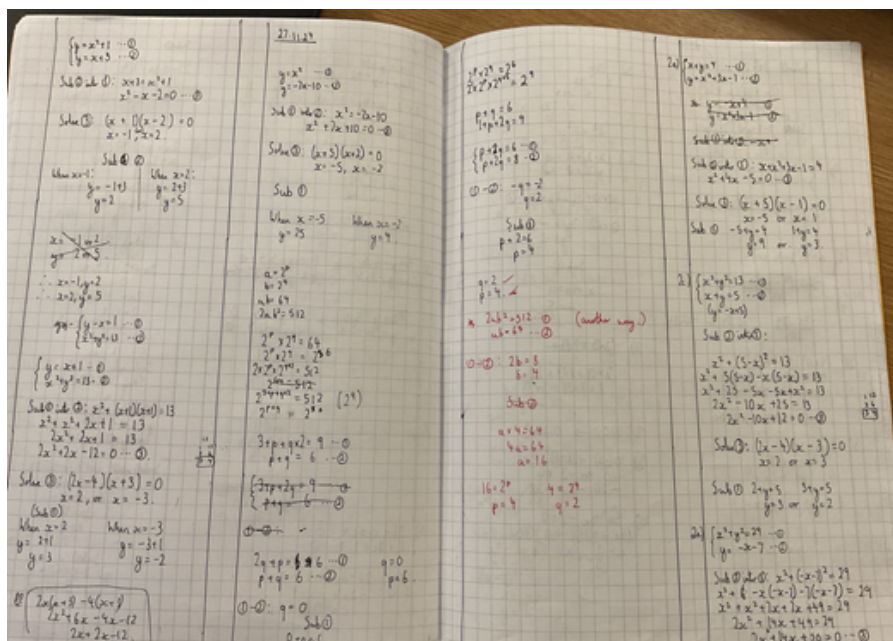 {y=x²+1 ...①
{y=x+3 ...②
Sub ② into ①: x+3=x²+1
x²-x-2=0 ...③
Solve ③: (x+1)(x-2)=0
x=-1, x=2.
Sub ②
When x=-1: When x=2:
y=-1+3 y=2+3
y=2 y=5
x=-1 or 2
y=2 or 5
∴ x=-1, y=2
∴ x=2, y=5
{y-x=1 ...①
{x²+y²=13 ...②
{y=x+1 ...①
{x²+y²=13 ...②
Sub ① into ②: x²+(x+1)(x+1)=13
x²+x²+2x+1=13
2x²+2x+1=13
2x²+2x-12=0 ...③
Solve ③: (2x-4)(x+3)=0
x=2, or x=-3.
(Sub ①)
When x=2 When x=-3
y=2+1 y=-3+1
y=3 y=-2
2x(x+3)-4(x+3)
2x²+6x-4x-12
2x+2x-12
27.11.24
y=x² ...①
y=-7x-10 ...②
Sub ① into ②: x²=-7x-10
x²+7x+10=0 ...③
Solve ③: (x+5)(x+2)=0
x=-5, x=-2
Sub ①
When x=-5 When x=-2
y=25 y=4
a=2ᵖ
b=2^q
ab=64
2ab²=512
2ᵖ×2^q=64
3+p+q×2=9 ...①
p+q=6 ...②
{3+p+2q=9
{p+q=6 ...②
①-②:
2q+p=6 ...① q=0
p+q=6 ...② p=6.
①-②: q=0
Sub ①
2ᵖ+2^q=2⁶
p+q=6
1+p+2q=9
{p+q=6 ...①
{p+2q=8 ...②
①-②: -q=-2
q=2
Sub ①
p+2=6
p=4
q=2 ✓
p=4. ✓
2ab²=512 ...① (another way.)
ab=64 ...②
①÷②: 2b=8
b=4
Sub ②
a×4=64
4a=64
a=16
16=2ᵖ 4=2^q
p=4 q=2
2a) {x+y=4 ...①
{y=x²+3x-1 ...②
y=-x+4
y=x²+3x-1
Sub ② into ①: x+x²+3x-1=4
x²+4x-5=0 ...③
Solve ③: (x+5)(x-1)=0
x=-5 or x=1
Sub ① -5+y=4 1+y=4
y=9 or y=3
2c) {x²+y²=13 ...①
{x+y=5 ...②
(y=-x+5)
Sub ② into ①:
x²+(5-x)²=13
x²+5(5-x)-x(5-x)=13
x²+25-5x-5x+x²=13
2x²-10x+25=13
2x²-10x+12=0 ...③
Solve ③: (2x-4)(x-3)=0
x=2 or x=3
Sub ② 2+y=5 3+y=5
y=3 or y=2
{x²+y²=29 ...①
{y=-x-7 ...②
Sub ② into ①: x²+(-x-7)²=29
x²+x²+7x+7x+49=29
2x²+14x+49=29
2x²+14x+20=0 ...③